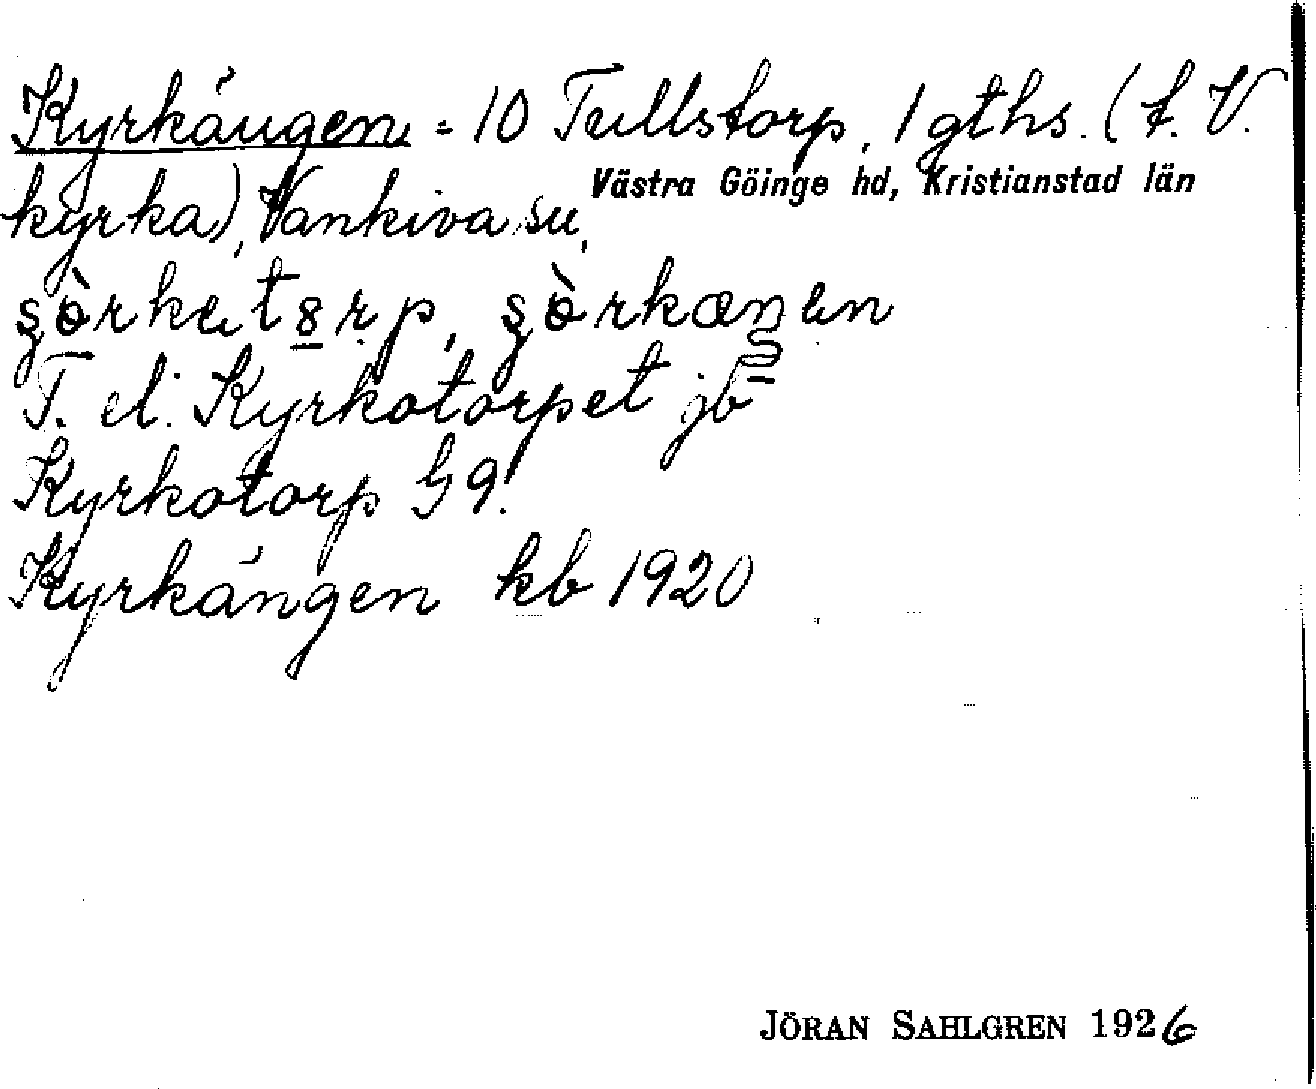 Kyrkängen = 10 Tullstorp, 1 gths. (t. V.
Västra Göinge hd, Kristianstad län
kyrka), Vankiva su,
T. el. Kyrkotorpet jb
Kyrkotorp G9.
Kyrkängen kb 1920
JÖRAN SAHLGREN 1926